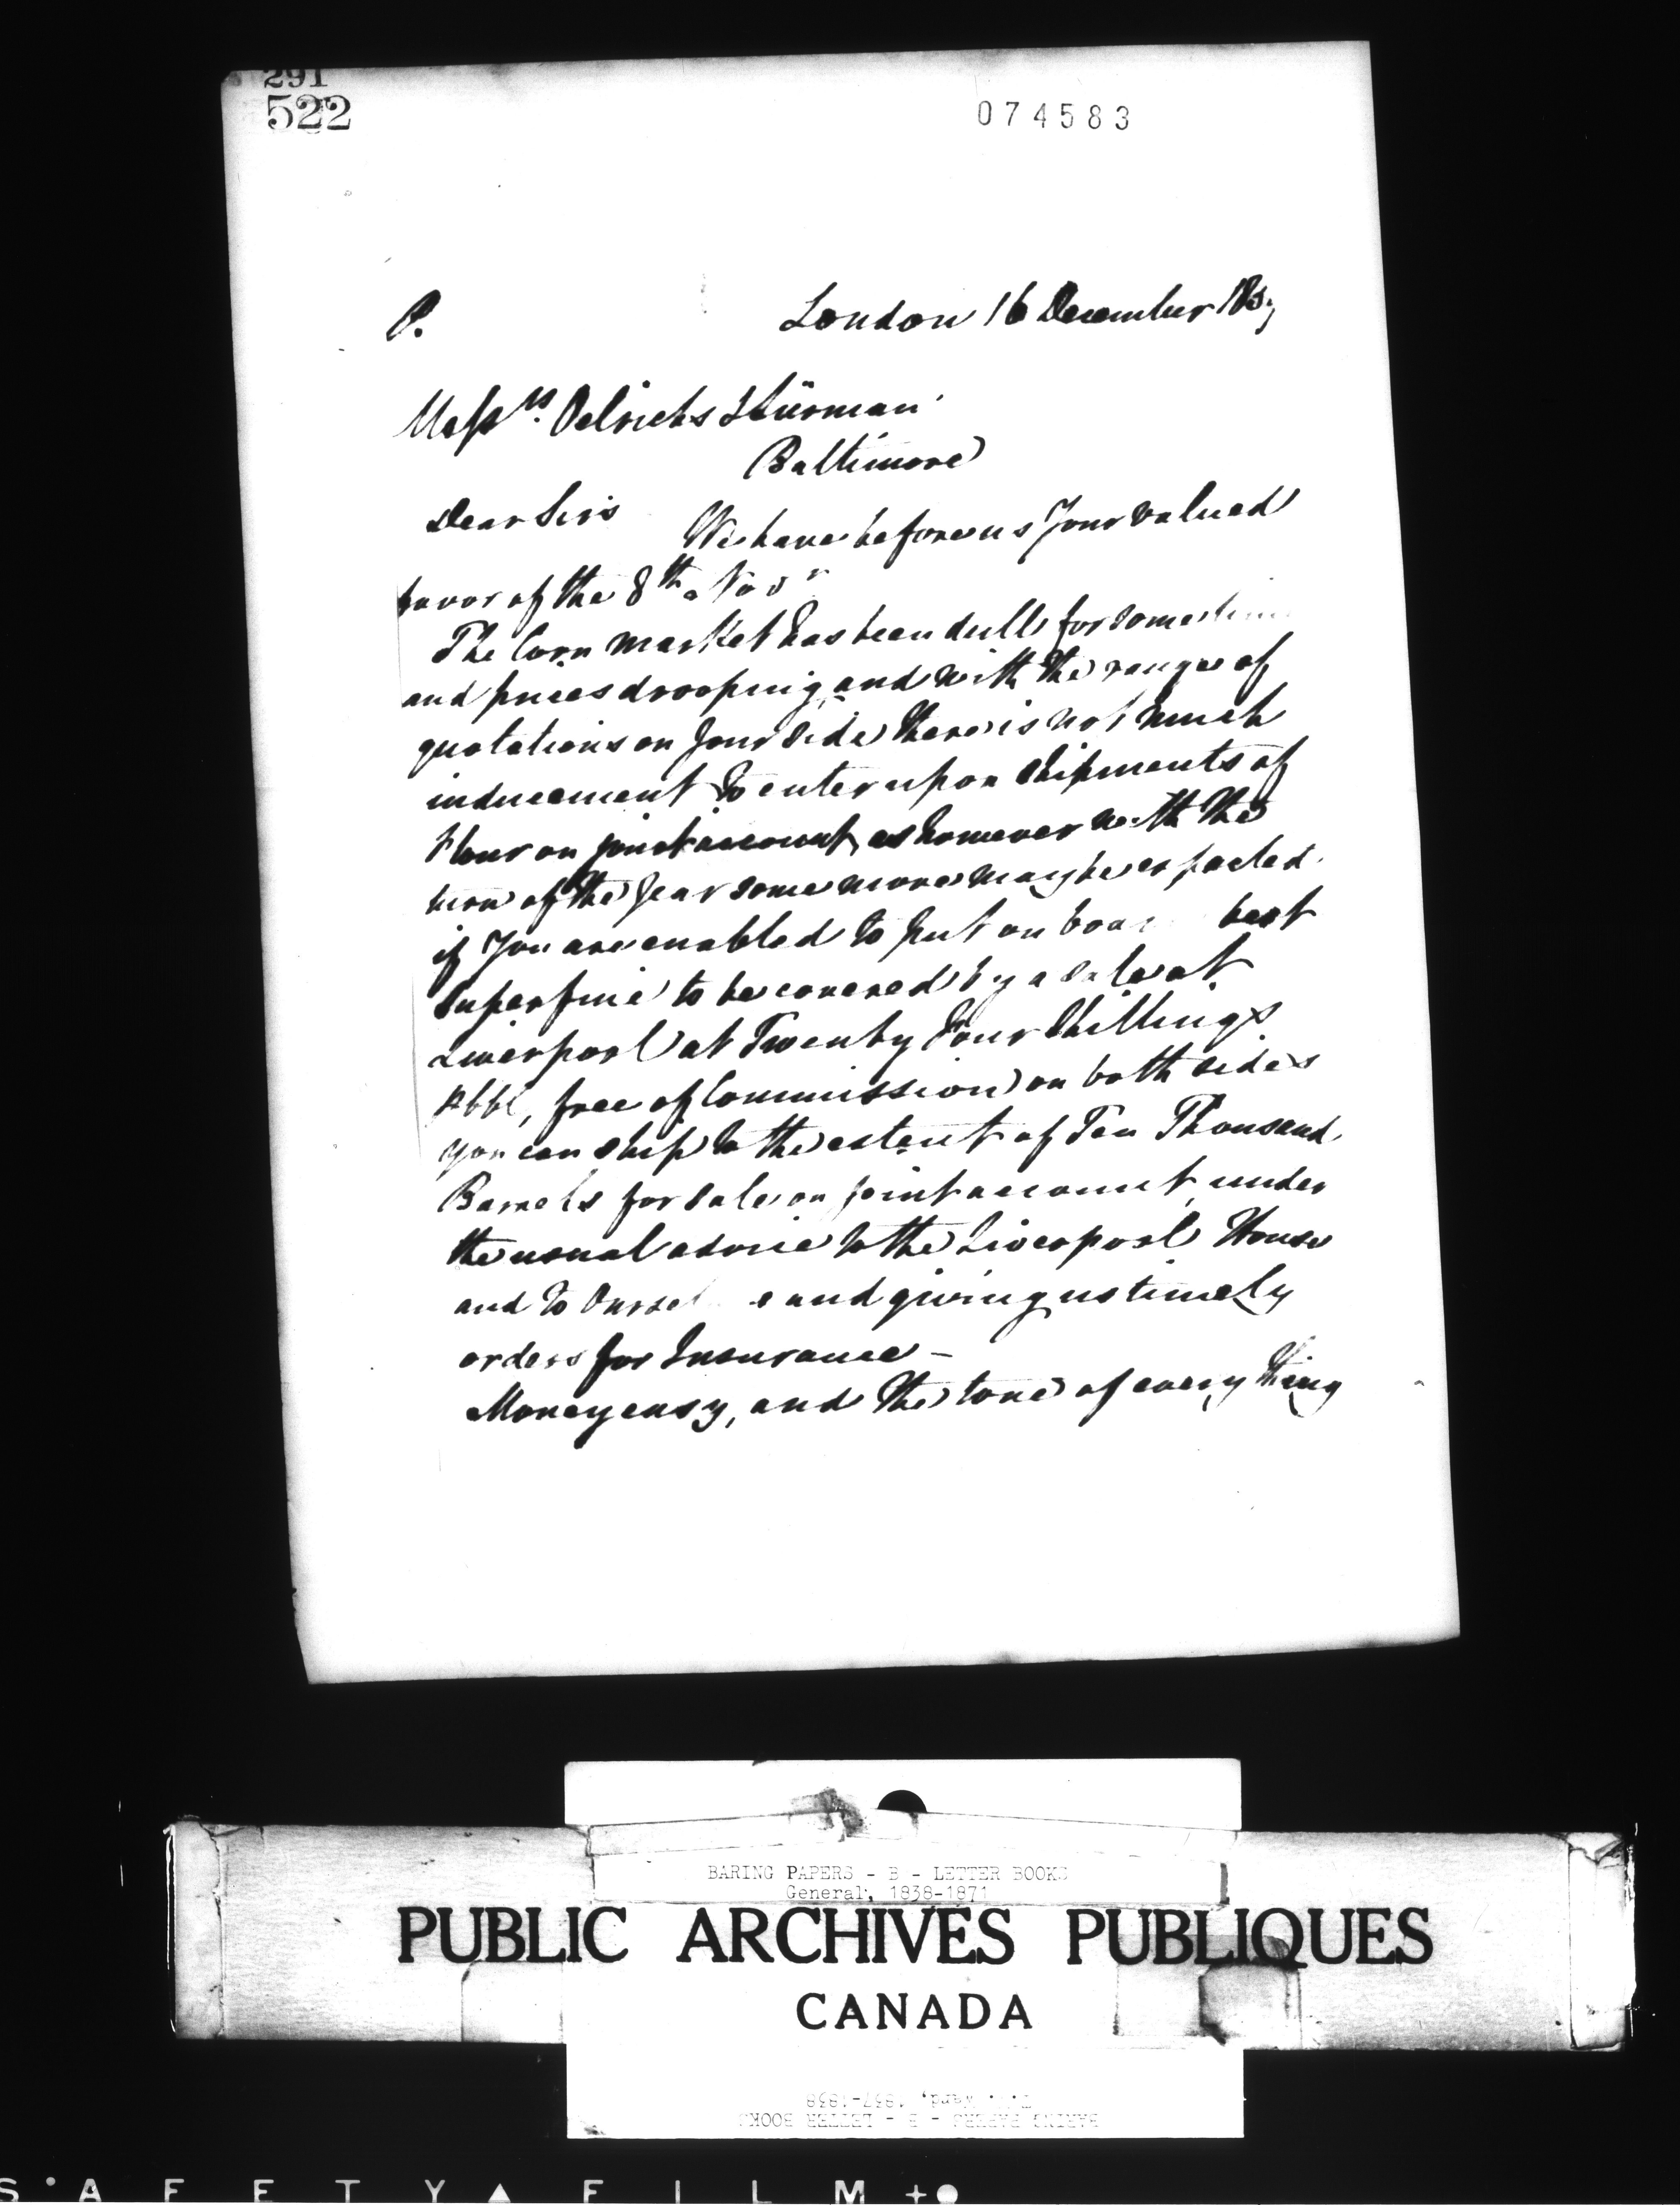 291
522
074583
P.
London 16 December 185
Messrs. Oelrichs & Lürman
Baltimore
Dear Sirs
We have before us Your valued
favor of the 8th Novr
The Corn market has been dull for some time
and prices drooping, and with the range of
quotations on Your side there is not much
inducement to enter upon shipments of
Flour on joint account, as however with the
turn of the Year some more may be expected
if You are enabled to put on boar best
Superfine to be covered by a sale at
Liverpool at Twenty Four Shillings
⅌ bbl, free of Commission on both sides
you can ship to the extent of Ten Thousand
Barrels for sale on joint account under
the usual advice to the Liverpool House
and to Oursel e and giving us timely
orders for Insurance –
Money easy, and the tone of every thing
BARING PAPERS - B - LETTER BOOKS
General, 1838-1871
PUBLIC ARCHIVES PUBLIQUES
CANADA
Ward, 1837-1838
BARING PAPERS - B - LETTER BOOKS
SAFETY FILM